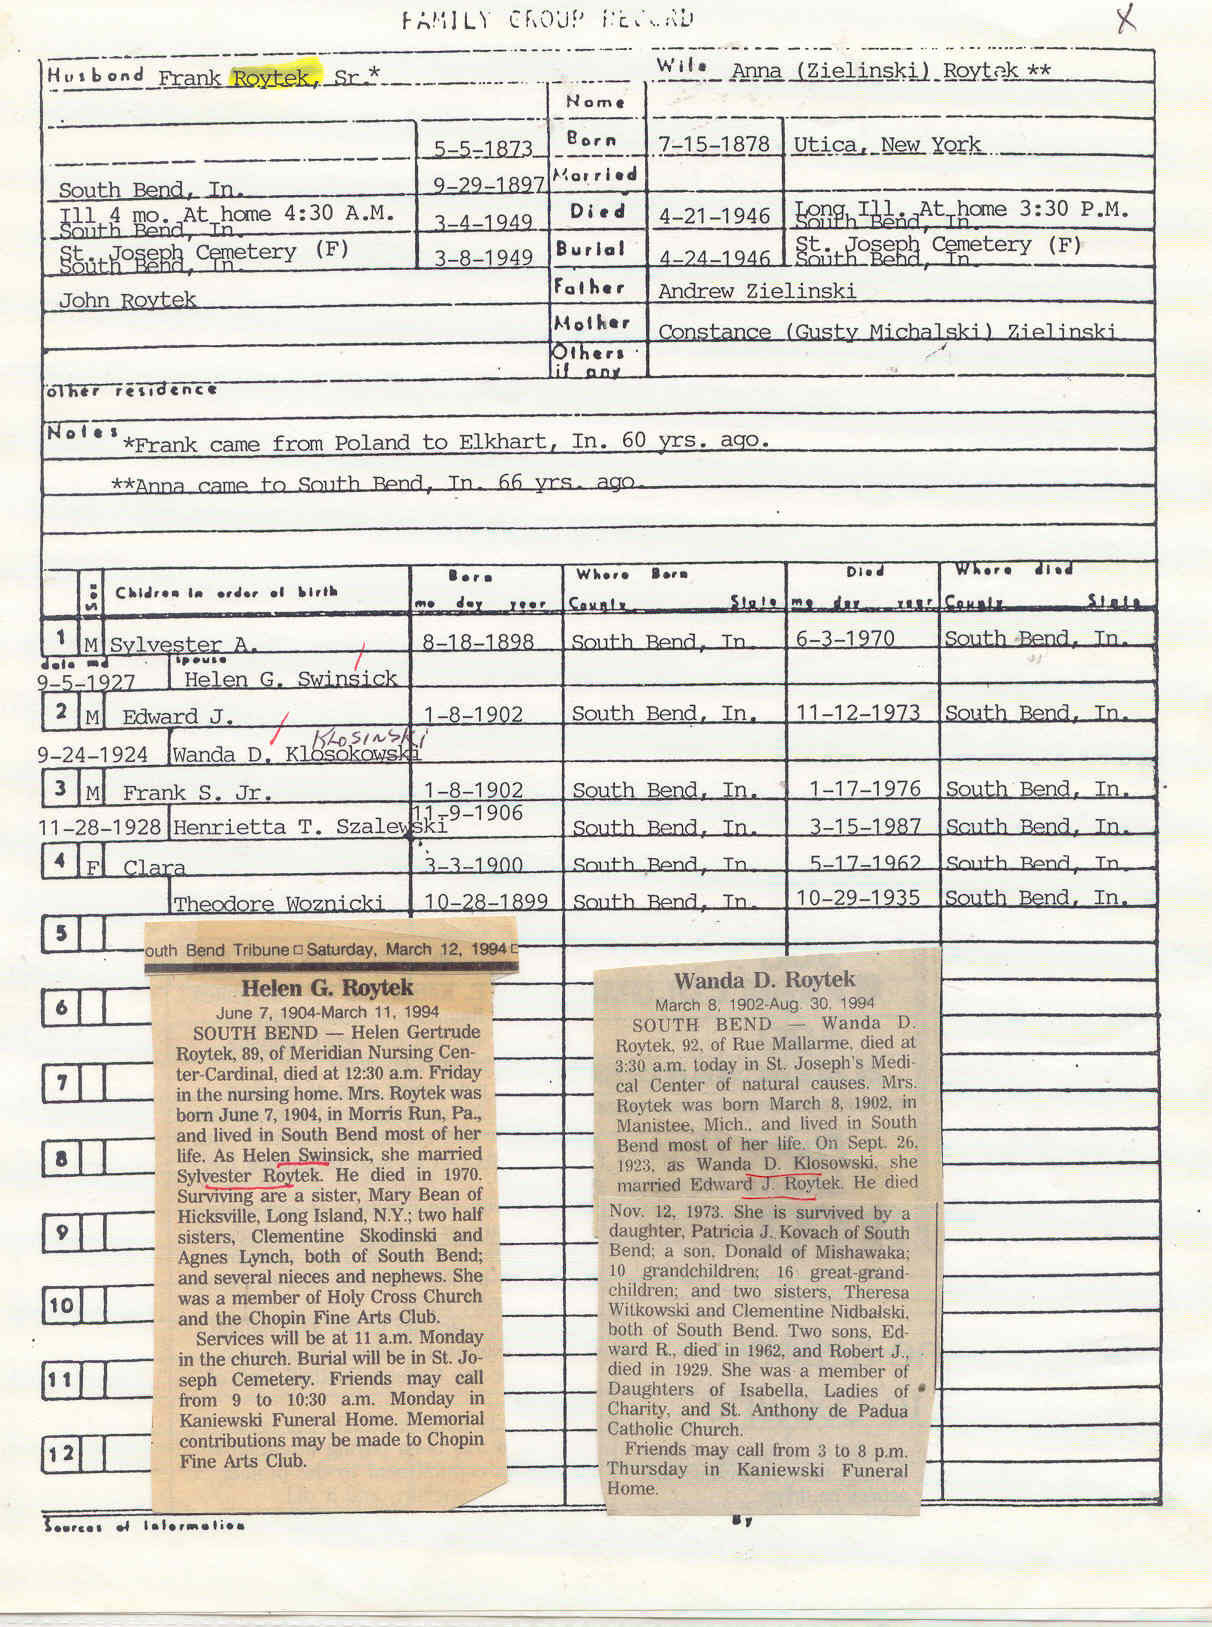 FAMILY GROUP RECORD
X
Husband Frank Roytek, Sr.*
Wife Anna (Zielinski) Roytek **
Name
5-5-1873 Born 7-15-1878 Utica, New York
South Bend, In. 9-29-1897 Married
Ill 4 mo. At home 4:30 A.M.
South Bend, In. 3-4-1949 Died 4-21-1946 Long Ill. At home 3:30 P.M.
South Bend, In.
St. Joseph Cemetery (F)
South Bend, In. 3-8-1949 Burial 4-24-1946 St. Joseph Cemetery (F)
South Bend, In.
John Roytek Father Andrew Zielinski
Mother Constance (Gusty Michalski) Zielinski
Others
if any
other residence
Notes *Frank came from Poland to Elkhart, In. 60 yrs. ago.
**Anna came to South Bend, In. 66 yrs. ago.
Sex Chidren in order of birth Born Where Born Died Where died
mo day year County State mo day year County State
1 M Sylvester A. 8-18-1898 South Bend, In. 6-3-1970 South Bend, In.
date md spouse
9-5-1927 Helen G. Swinsick
2 M Edward J. 1-8-1902 South Bend, In. 11-12-1973 South Bend, In.
KLOSINSKI
9-24-1924 Wanda D. Klosokowski
3 M Frank S. Jr. 1-8-1902 South Bend, In. 1-17-1976 South Bend, In.
11-28-1928 Henrietta T. Szalewski 11-9-1906 South Bend, In. 3-15-1987 South Bend, In.
4 F Clara 3-3-1900 South Bend, In. 5-17-1962 South Bend, In
Theodore Woznicki 10-28-1899 South Bend, In. 10-29-1935 South Bend, In.
5
6
7
8
9
10
11
12
outh Bend Tribune □ Saturday, March 12, 1994 □
Helen G. Roytek
June 7, 1904-March 11, 1994
SOUTH BEND — Helen Gertrude
Roytek, 89, of Meridian Nursing Cen-
ter-Cardinal, died at 12:30 a.m. Friday
in the nursing home. Mrs. Roytek was
born June 7, 1904, in Morris Run, Pa.,
and lived in South Bend most of her
life. As Helen Swinsick, she married
Sylvester Roytek. He died in 1970.
Surviving are a sister, Mary Bean of
Hicksville, Long Island, N.Y.; two half
sisters, Clementine Skodinski and
Agnes Lynch, both of South Bend;
and several nieces and nephews. She
was a member of Holy Cross Church
and the Chopin Fine Arts Club.
Services will be at 11 a.m. Monday
in the church. Burial will be in St. Jo-
seph Cemetery. Friends may call
from 9 to 10:30 a.m. Monday in
Kaniewski Funeral Home. Memorial
contributions may be made to Chopin
Fine Arts Club.
Wanda D. Roytek
March 8, 1902-Aug. 30, 1994
SOUTH BEND — Wanda D.
Roytek, 92, of Rue Mallarme, died at
3:30 a.m. today in St. Joseph's Medi-
cal Center of natural causes. Mrs.
Roytek was born March 8, 1902, in
Manistee, Mich., and lived in South
Bend most of her life. On Sept. 26,
1923, as Wanda D. Klosowski, she
married Edward J. Roytek. He died
Nov. 12, 1973. She is survived by a
daughter, Patricia J. Kovach of South
Bend; a son, Donald of Mishawaka;
10 grandchildren; 16 great-grand-
children; and two sisters, Theresa
Witkowski and Clementine Nidbalski,
both of South Bend. Two sons, Ed-
ward R., died in 1962, and Robert J.,
died in 1929. She was a member of
Daughters of Isabella, Ladies of
Charity, and St. Anthony de Padua
Catholic Church.
Friends may call from 3 to 8 p.m.
Thursday in Kaniewski Funeral
Home.
Sources of Information By